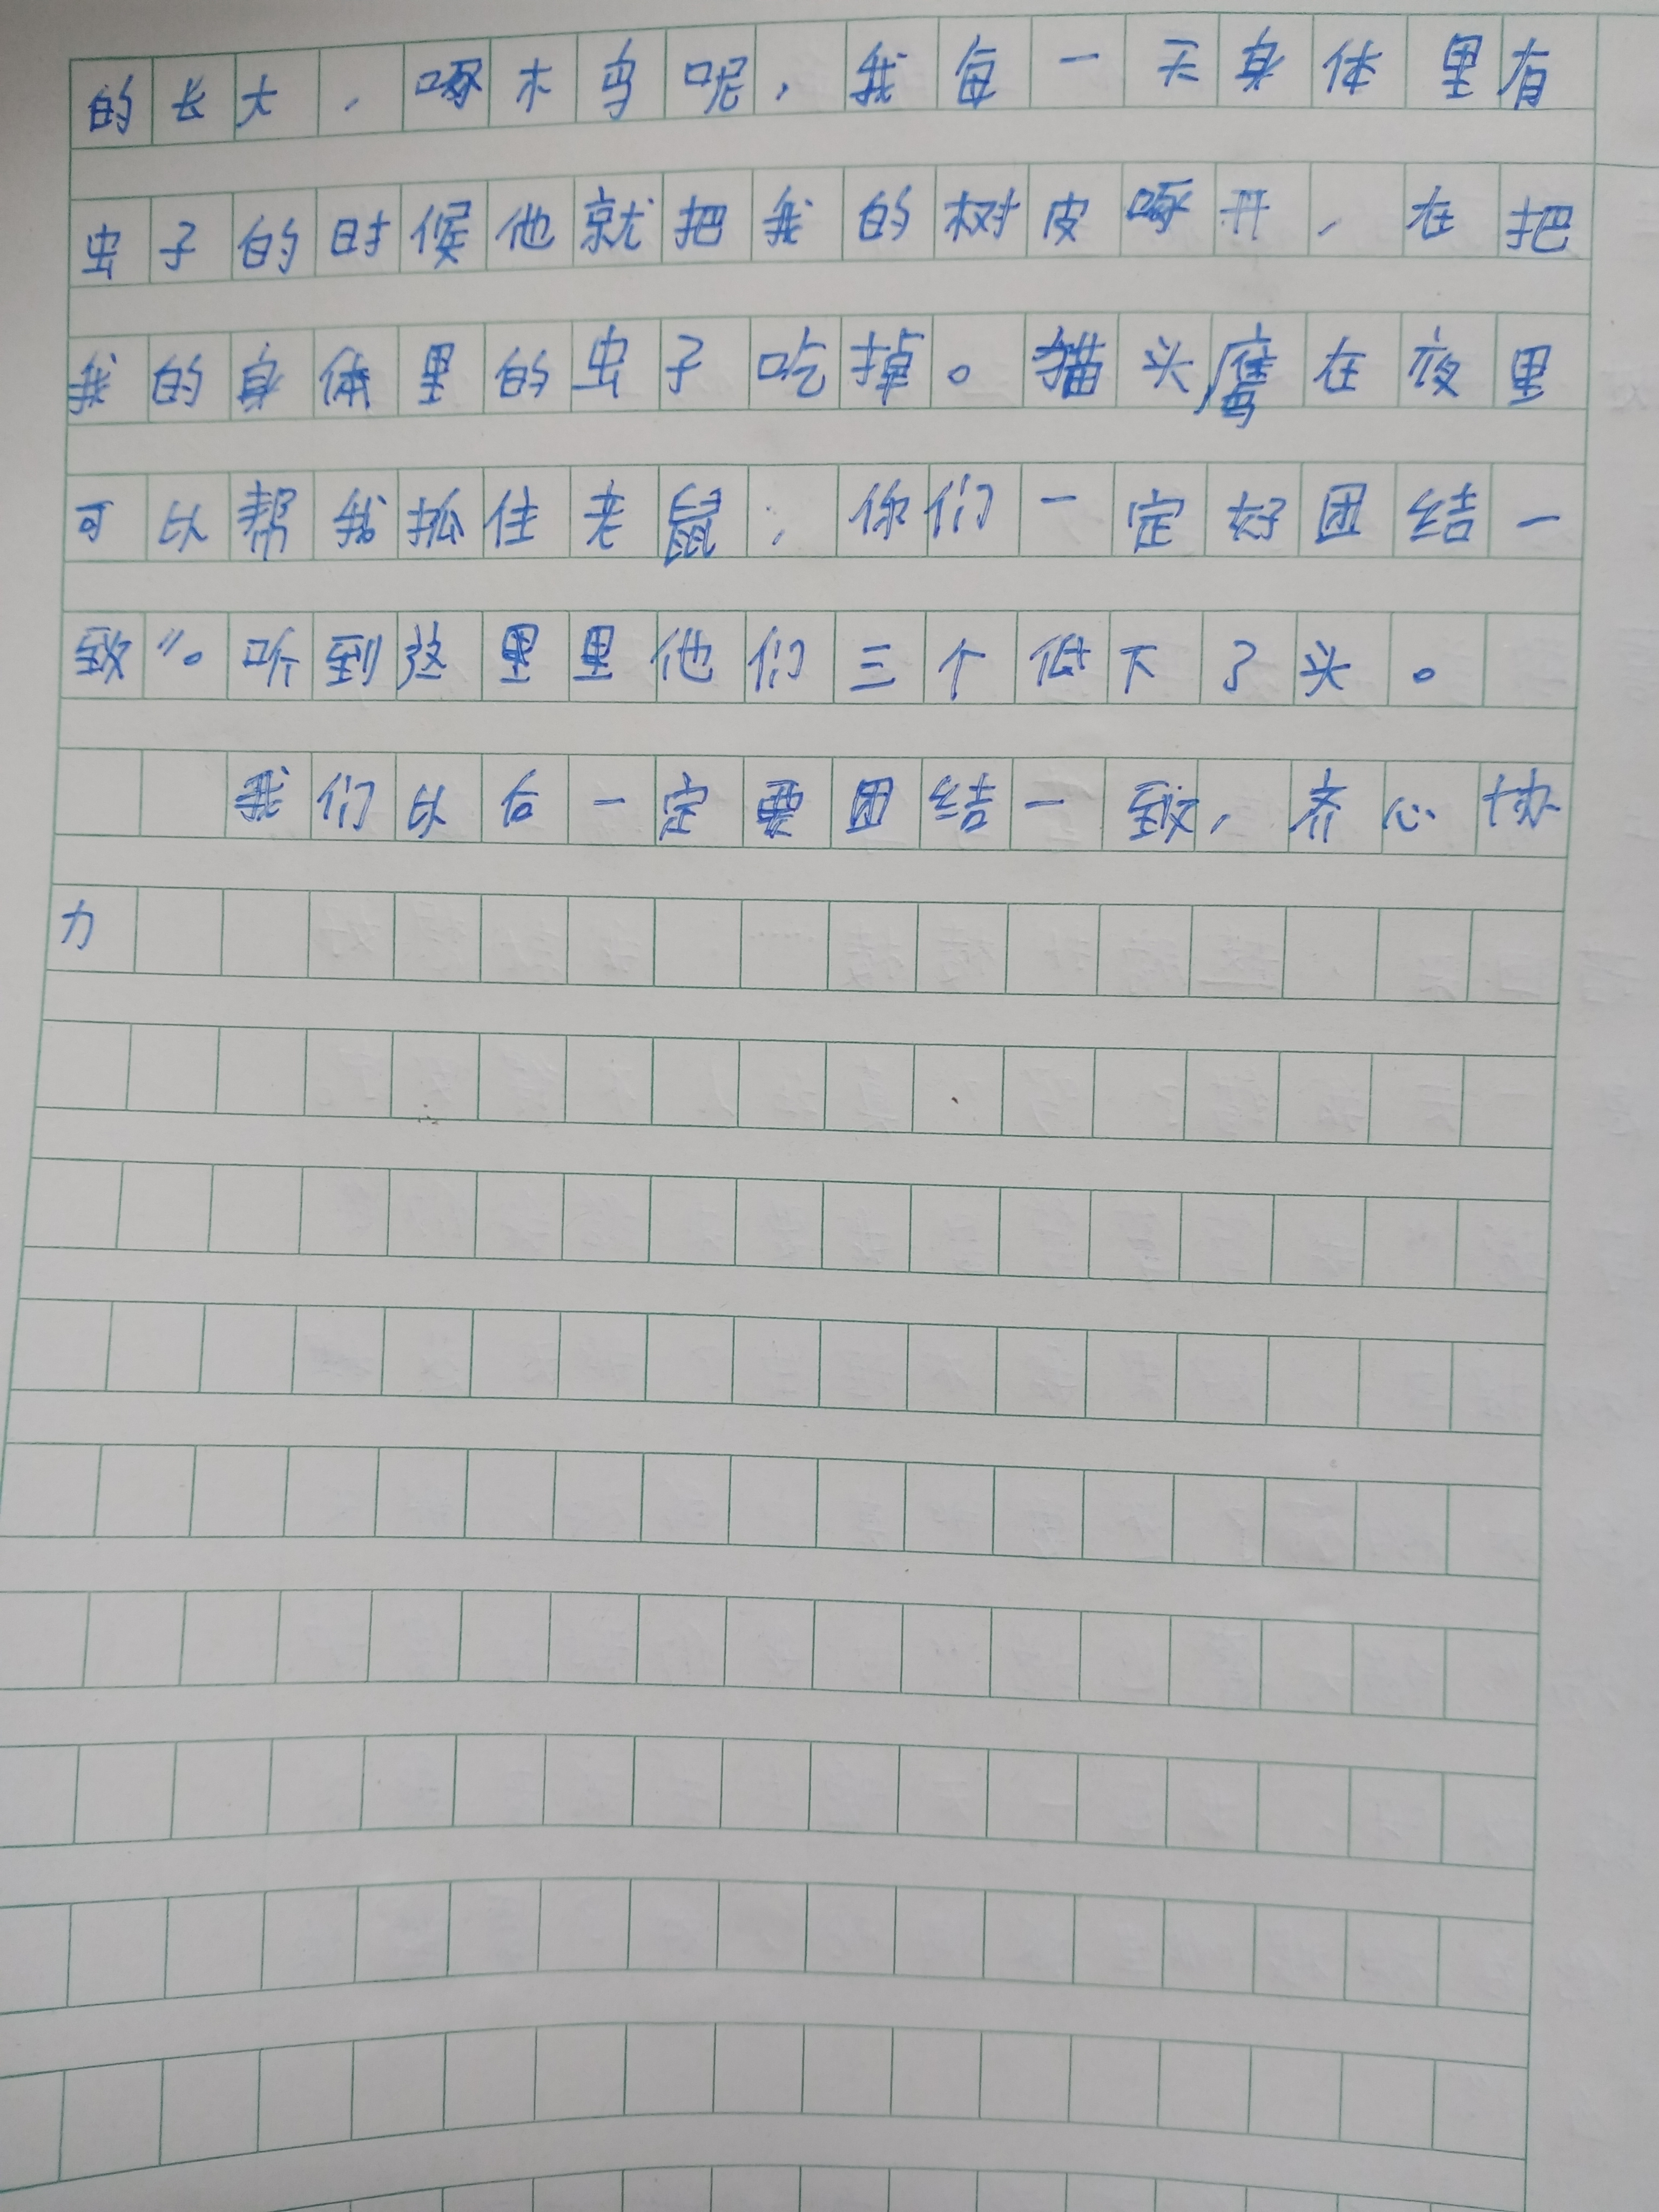 的长大，啄木鸟呢，我每一天身体里有
虫子的时候他就把我的树皮啄开，在把
我的身体里的虫子吃掉。猫头鹰在夜里
可以帮我抓住老鼠，你们一定好团结一
致”。听到这里里他们三个低下了头。
我们以后一定要团结一致，齐心协
力